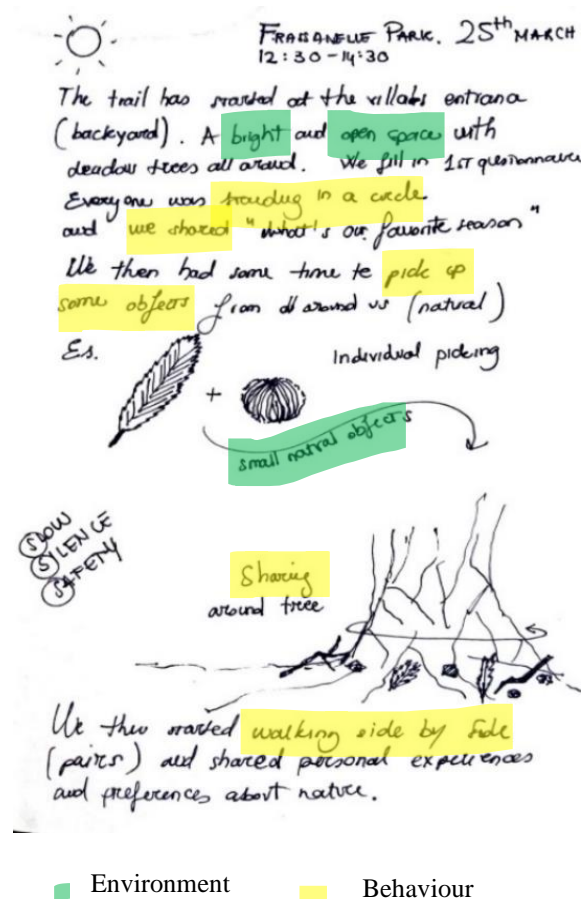 FRASSANELLE PARK. 25th MARCH
12:30-14:30
The trail has started at the villa's entrana
(backyard). A bright and open space with
deadow trees all around. We fill in 1st questionnaire
Everyone was standing in a circle.
and we shared "what's our favorite season"
We then had some time to pick up
some objects from all around us (natural)
Es.
Individual picking
+
small natural objects
SLOW
SILENCE
SAFETY
Sharing
around tree
We then started walking side by side
(pairs) and shared personal experiences
and preferences about nature.
Environment
Behaviour